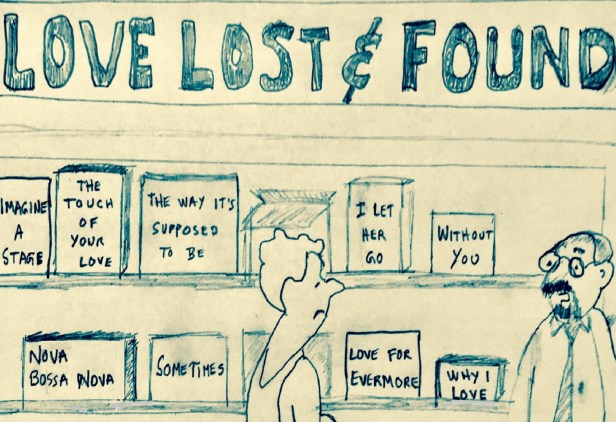 LOVE LOST & FOUND
IMAGINE
A
STAGE
THE
TOUCH
OF
YOUR
LOVE
THE WAY IT'S
SUPPOSED
TO BE
I LET
HER
GO
WITHOUT
YOU
NOVA
BOSSA NOVA
SOMETIMES
LOVE FOR
EVERMORE
WHY I
LOVE